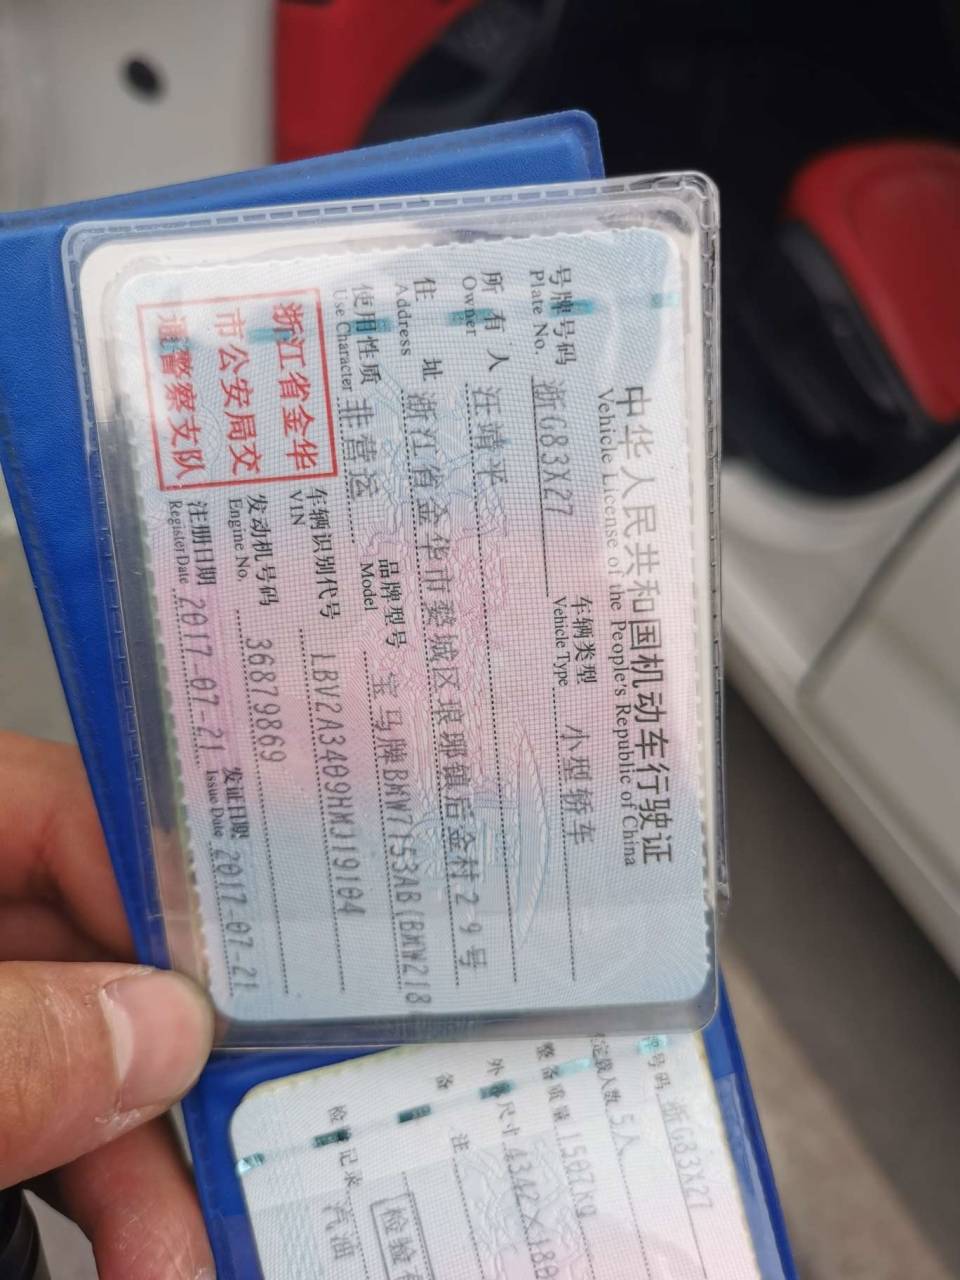 中华人民共和国机动车行驶证
Vehicle License of the People's Republic of China
号牌号码 浙G83X27 车辆类型 小型轿车
Plate No. Vehicle Type
所有人 汪靖平
Owner
住址 浙江省金华市婺城区琅琊镇后金村29号
Address
使用性质 非营运 品牌型号 宝马牌BMW7153AB(BMW218
Use Character Model
浙江省金华
市公安局交
通警察支队
车辆识别代号 LBV2A3409HMJ19104
VIN
发动机号码 36879869
Engine No.
注册日期 2017-07-21 发证日期 2017-07-21
Register Date Issue Date
牌号码 浙G83X27
定载人数 5人
整备质量 1507kg
外廓尺寸 4342×180
备注
检验记录 汽油
检验